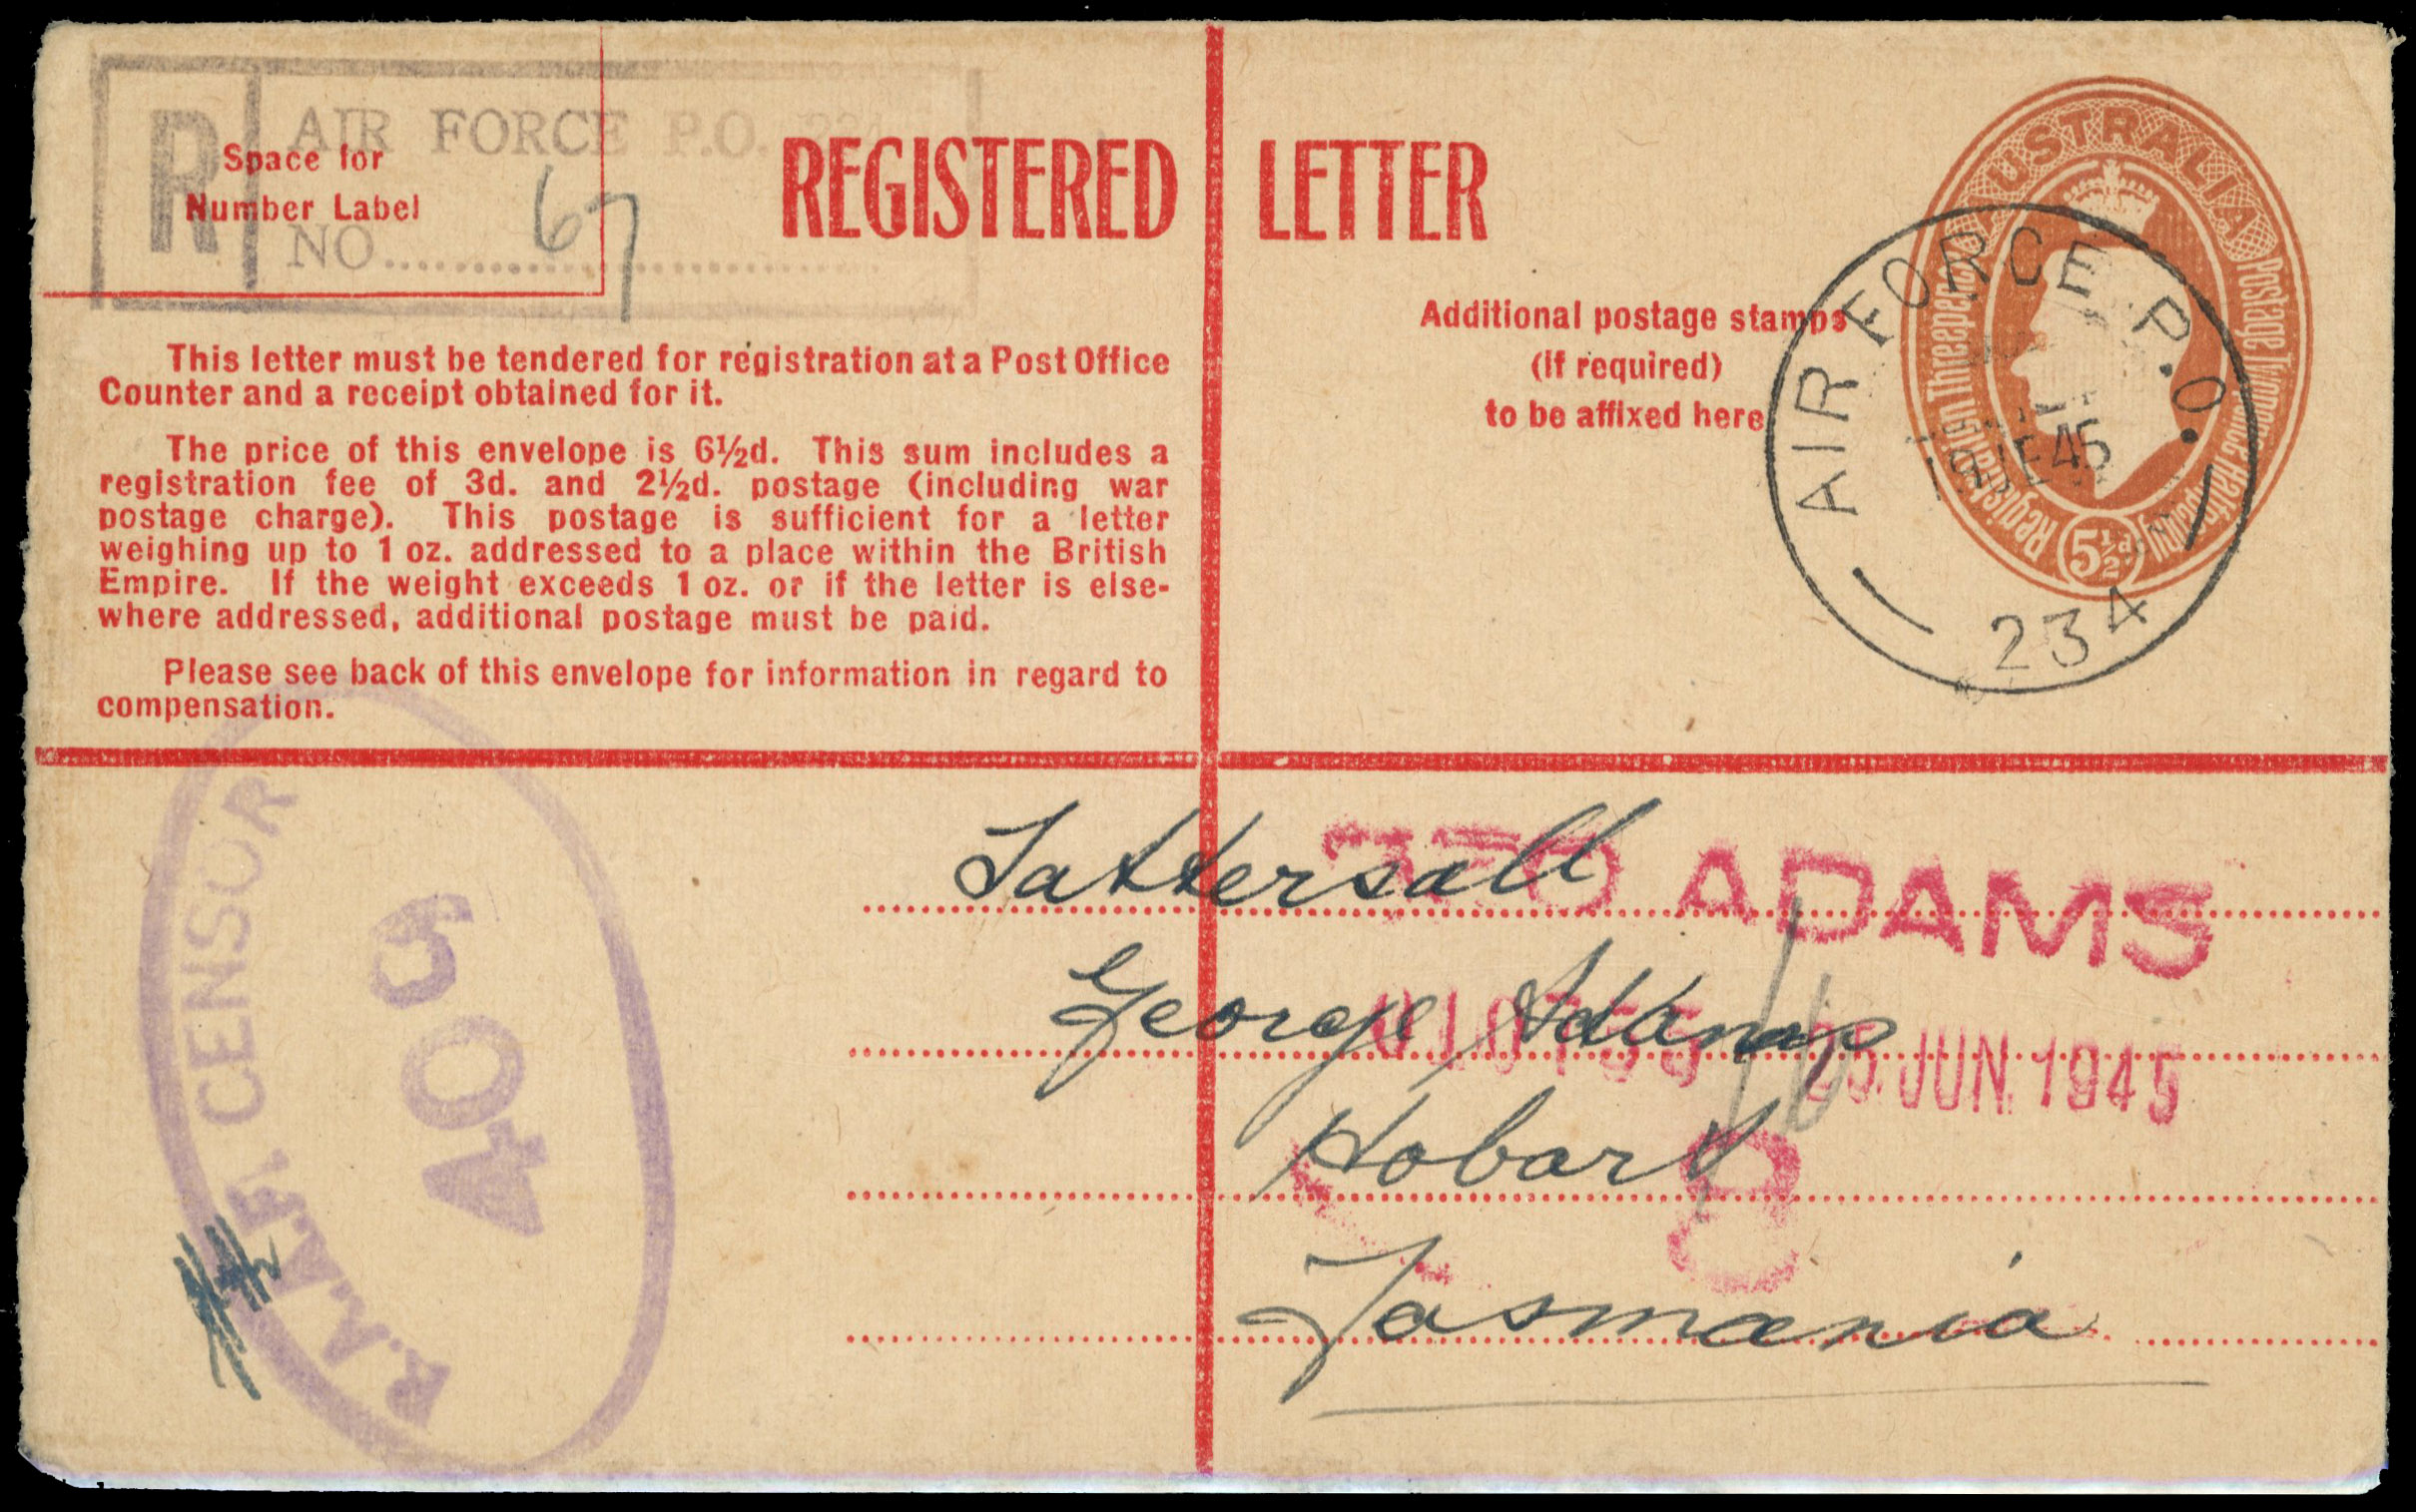 R
AIR FORCE P.O. 234
Space for
Number Label
NO
67
REGISTERED LETTER
This letter must be tendered for registration at a Post Office
Counter and a receipt obtained for it.
The price of this envelope is 6½d. This sum includes a
registration fee of 3d. and 2½d. postage (including war
postage charge). This postage is sufficient for a letter
weighing up to 1 oz. addressed to a place within the British
Empire. If the weight exceeds 1 oz. or if the letter is else-
where addressed, additional postage must be paid.
Please see back of this envelope for information in regard to
compensation.
Additional postage stamps
(if required)
to be affixed here
AUSTRALIA
Registration Threepence
Postage Twopence Halfpenny
5½d
AIR FORCE P.O.
19 JE 45
234
R.A.A.F. CENSOR
409
Tattersall
George Adams
Hobart
Tasmania
ADAMS
JUN 1945
8